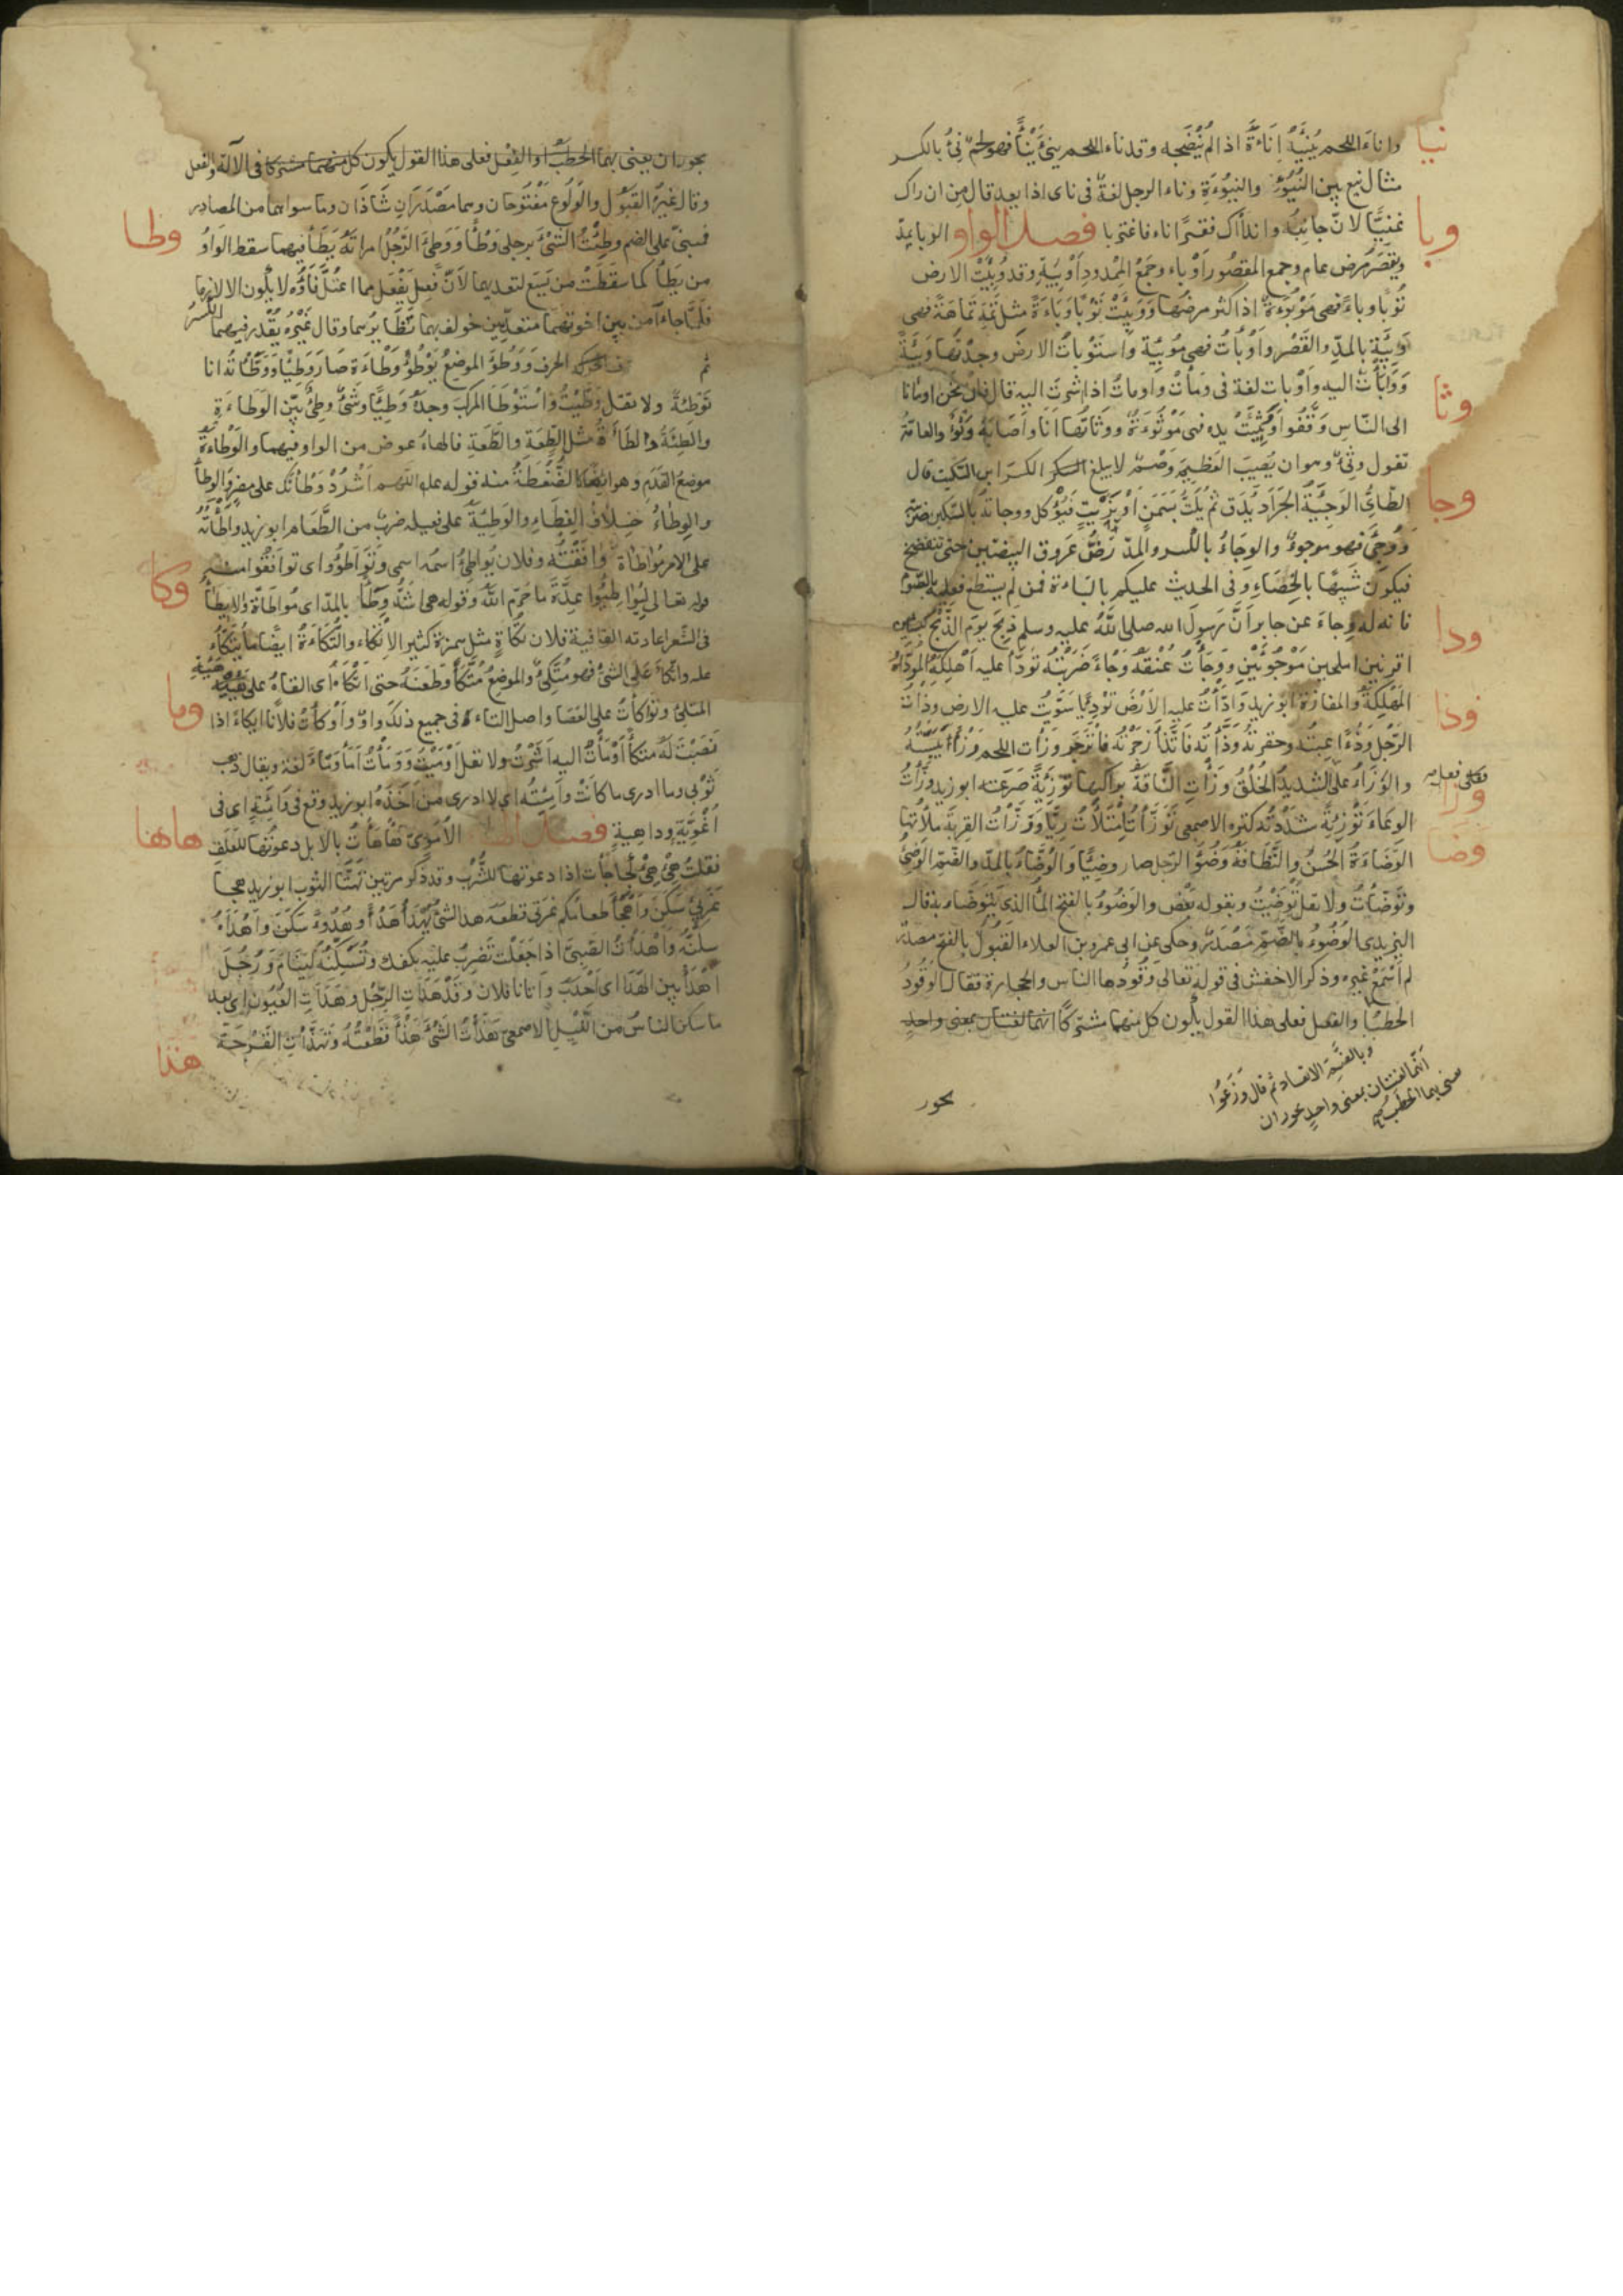 نيا
وَاناءَ اللحم يُنِيْئُه اِناءَةً اذا لم يُنضجه وقد ناء اللحم ينئُ نَيْئًا فهو لحمٌ نِئٌ بالكسر
مثال نيع بين النُيُوْءِ والنيُوْءَةِ وناء الرجل لغة فى ناى اذا بعد قال من ان راك
وبا
غنيًّا لان جانبُه وان راك فقيرًا ناء فاغتربا فصل الواو الوبا يمدّ
ويقصَر مرض عام وجمع المقصُور اَوْباء وجمعُ الممدود اَوْبِئَة وقد وَبِئَتْ الارض
تُوْبأ وباءً فهى مَوْبُوءَة اذا كثر مرضها ووَبِئَتْ تَوْبأ وَبَاءَةً مثل تَمِهَ تَمَاهَةً فهى
وَبِيئَةٌ بالمدّ والقَصْر واَوْبَأت فهى مُوبِئَة واستَوْبأتُ الارضَ وجدتُها وَبِيئَةً
وثا
ووَبَأْتُ اليه واَوْبَأت لغة فى ومَأْتُ واومأتُ اذا اشرتَ اليه قال وان نحن اومأنا
الى النّاس وَقَّفُوا وُثِئَتْ يده فهى مَوْثُوءَةٌ ووثاتُها اَنَا واَصَابَهُ وَثْؤٌ والعامّة
تقول وَثْىٌ وهو ان يُصِيبَ العَظْمَ وَصْمٌ لا يبلغ الكسر ابن السّكّيت قال
وجا
الطّائِىُّ الوَجِيئَةُ الجَرَاد يُدَق ثم يُلَتُّ بسَمَنٍ اَوْ بزَيْتٍ فيُوْكل ووجاتُه بالسّكين ضربته
ووُجِئَ فهو موجوءٌ والوِجَاءُ بالكسر والمدّ رَضُّ عَروق البيضتين حتى تنفضخ
فيكون شَبِيهًا بالخِصَاءِ وفى الحديث عليكم بالبَاءة فمن لم يستطع فعليه بالصّوم
ودا
فانه له وِجاءَ عن جابر اَنَّ رَسولَ الله صلى اللهُ عليه وسلم ذبح يومَ الذَّبْحِ كبشين
اقرنين املحين مَوْجُوْئَيْنِ ووَجَأْتُ عُنُقَهُ وَجْاءً ضَرَبْتُه تودّأ عليه اَهْلَكَهُ المُوَدَّأةُ
المَهْلِكَةُ والمفازة ابو زيد وَدَّأْتُ عليهِ الاَرْضَ تَوْدِيًا سَوَّيْتُ عليه الارض وذَأْتُ
وذا
الرّجل وَذْءًا عِبْتُه وحقرتُه وَذَأْتُه فَاتَّذَأ زَجَرْتُه فانْزَجَرَ وَزَأْت اللحم وَزْأً اَيْبَسْتُه
وزا
على فعلٍ
والوَزَأُ على الشديدُ الخَلْقُ وَزَأَتِ النَّاقةُ براكبها تَوْزِئَةً صَرَعَته ابو زيد وَزَّأتُ
الوِعاءَ تَوْزِئَةً شَدَدْتُ كنزه الاصمعى تَوَزَّأْتُ اِمْتَلأْتُ رِيًّا ووَزَّأْتُ القِربَة ملأتها
وضا
الوَضَاءَةُ الحُسْنُ والنَّظَافَةُ وَضُؤَ الرّجل صار وضِيئًا والوُضَّاءُ بالمدّ والضّم الوَضِئُ
وتَوَضّأتُ ولا تقل تَوَضَّيْتُ وبقوله بَعْضٌ والوَضُوءُ بالفتح المآ الذى يُتَوَضّاء به قال
اليزيدى الوُضُوءُ بالضّمّ مَصْدَرٌ وحكى عن ابى عمرو بن العلاء القَبُولُ بالفتح مصدر
لم اَسْمَعْ غيره وذكر الاخفش فى قوله تعالى وَقُودُها الناس والحجارة فقال الوَقُودُ
الحَطَبُ والفعل فعلى هذا القول يكون كل منهما مشتركًا انهما لغتان بمعنى واحدٍ
وبالضَّمّ الاتقاد ثم قال وَزَعَمُوا
اَنّهما لغتان بمعنى واحدٍ يجوز ان
يعنى بهما الحَطَبُ
يجوز
يجوز ان يعنى بهما الحَطَبُ او الفِعْل فعلى هذا القول يكون كل منهما مشتركا فى الآلة والفعل
وقال غيره القَبُوْل والوَلُوع مَفْتُوحَان وهما مَصْدَرَانِ شَاذَّان وما سواهما من المصادر
وطا
فمبنىّ على الضم وطِئْتُ الشَّئَ برجلى وَطْأً ووَطِئَ الرَّجُلُ امراتَهُ يَطَأ فيهما سقط الوَاوُ
من يَطَأ كما سَقَطَتْ من يَسَع لتعديهما لاَنّ فَعِلَ يَفْعَلُ مما اعتلّ فَاؤُه لا يكون الا لازما
فلَمَّا جاءَا من بين اخوتهما متعدّيين خولف بهما نظَايرُهما وقال غَيْرُه يُقَدّر فيهما الكسرُ
ثم حركة الحرف ووَطُؤَ الموضعُ يَوْطُؤُ وَطَاءَة صَارَ وَطِيئًا ووَطَّأْتُه انا
تَوْطِئَةً ولا تقل وَطَّيْتُ واسْتَوْطَأ المركبَ وجدَهُ وَطِيئًا وشَىْءٌ وطِىٌ بيّن الوطاءَةِ
والطِئَةُ والطَّأَةُ مثل الطِّعَةِ والطَّعَةِ فالهاءُ عوض من الواو فيهما والوَطْأةُ
موضعُ القَدَمِ وهو ايضًا كالضَّغْطَةُ منه قوله عم اللهم اشْدُدْ وَطْأتَك على مضر والوطأ
والوِطَاءُ خِلافُ الغِطَاءِ والوَطِيئَةُ على فعيلة ضربٌ من الطَّعَام ابو زيد واطَأْتُهُ
وكا
على الامر مُواطَاةً وافَقْتُه وفلان يُواطِئُ اسْمُه اسمى وتَوَاطَؤُوا اى توافَقُوا منه
وله تعالى لِيُوَاطِئُوا عِدَّةَ ما حَرّم اللهُ وقوله هى اَشَدُّ وِطَاً بالمدّ اى مواطَأةً والايطاُ
فى الشّعر اعادته القافية فلان تُكَأةٍ مثل همزة كثير الاتكاء والتُّكَاءَةُ ايضًا ما يُتَّكَأُ
عليه واتّكأ عَلى الشئ فهو مُتَّكِئٌ والموضِعُ مُتَّكَأٌ وطَعَنَهُ حتى اَتْكَأهُ اى القَاهُ على هَيْئَةِ
وما
المتكئ وتوَكَّأتُ على العَصَا واصل التاء فى جميع ذلكَ وَاوٌ واَوْكَأْتُ فلانًا ايكاءً اذا
نَصَبْتَ لَهُ متكَأً اَوْمَأْتُ اليه اَشَرْتُ ولا تقل اَوْمَيْتُ ووَمَأْتُ اَمَأُ وَمْأً لغة ويقال ذهب
ثَوْبى وما ادرى ما كانَتْ وامِئَتُه اى لا ادرى من اَخَذَهُ ابو زيد وقع فى وامِئَةٍ اى فى
هاها
اُغْوِيَّةٍ وداهيةٍ فصل الهاء الاُمَوِىّ هَاهَأْتُ بالابل دعوتُها للعَلَفِ
فقلتُ هِئْ هِئْ كجَاجَأت اذا دعوتها للشُّرْب وقد ذكر مرتين تَهَتَّأ الثوب ابو زيد هجأ
غَرَثى سَكَنَ واهْجَأ طعامُكم غَرَثى قطعَه هدأ الشئ يَهْدَأُ هَدْأً وهُدُوءً سَكَنَ واَهْدَأهُ
سكّنَهُ واَهْدَأْتُ الصَّبِىَّ اذا جَعَلْتَ تَضْرِبُ عليه بكفك وتُسَكِّنُهُ ليَنَامَ ورَجُلٌ
اَهْدَأُ بين الهَدَأ اى اَحْدَبُ واَتانا فلان وقَدْ هَدَأتِ الرِّجْلُ وهَدَأَتِ العُيُون اى بعد
هذا
ما سكن الناسُ من اللَّيْلِ الاصمعىّ هَذَأْتُ الشَّئَ هَذْأً قَطَعْتُهُ وتَهَذَّأَتِ القَرْحَةُ